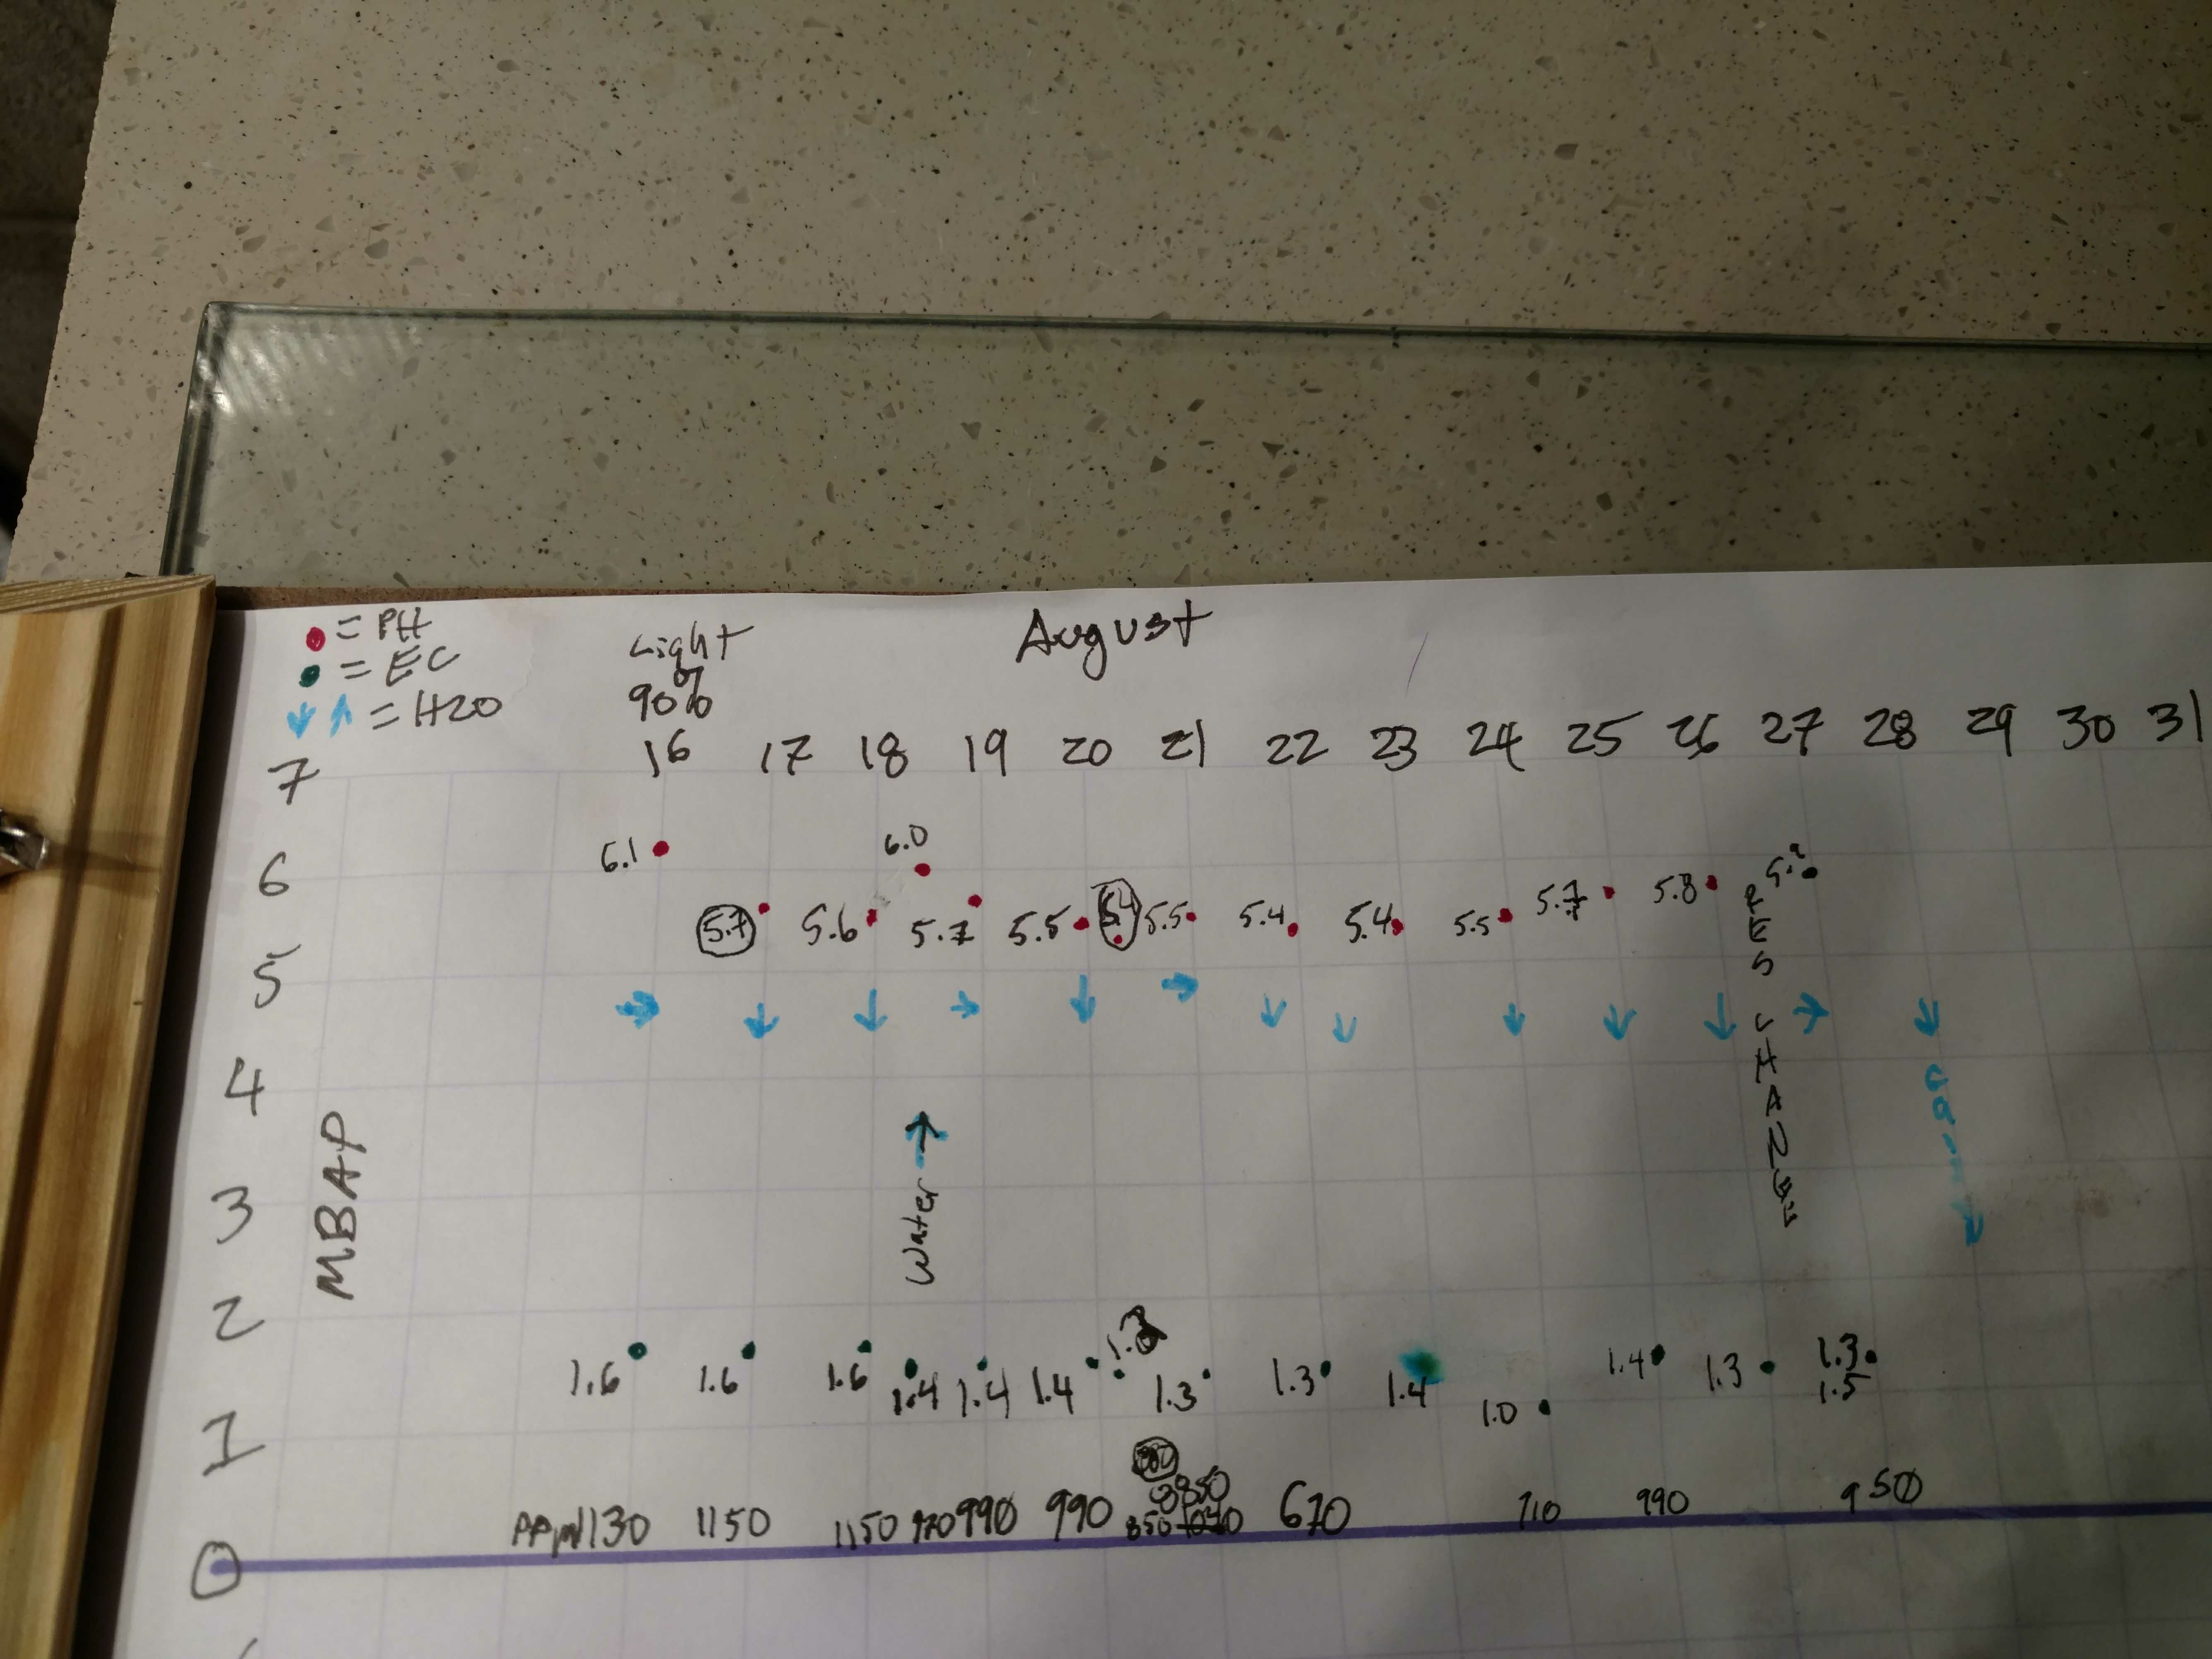 = PH
= EC
↓ ↑ = H20
Light
90%
August
16 17 18 19 20 21 22 23 24 25 26 27 28 29 30 31
7
6
5
4
3
2
1
0
MBAP
6.1 5.7 5.6 6.0 5.7 5.5 5.4 5.5 5.4 5.4 5.5 5.7 5.8
RES CHANGE
→ ↓ ↓ → ↓ → ↓ ↓ ↓ ↓ ↓ → ↓
Water →
1.6 1.6 1.6 1.4 1.4 1.4 1.3 1.3 1.4 1.0 1.4 1.3 1.3
1.5
PPM 1130 1150 1150 970 990 990 850 850 670 710 990 950